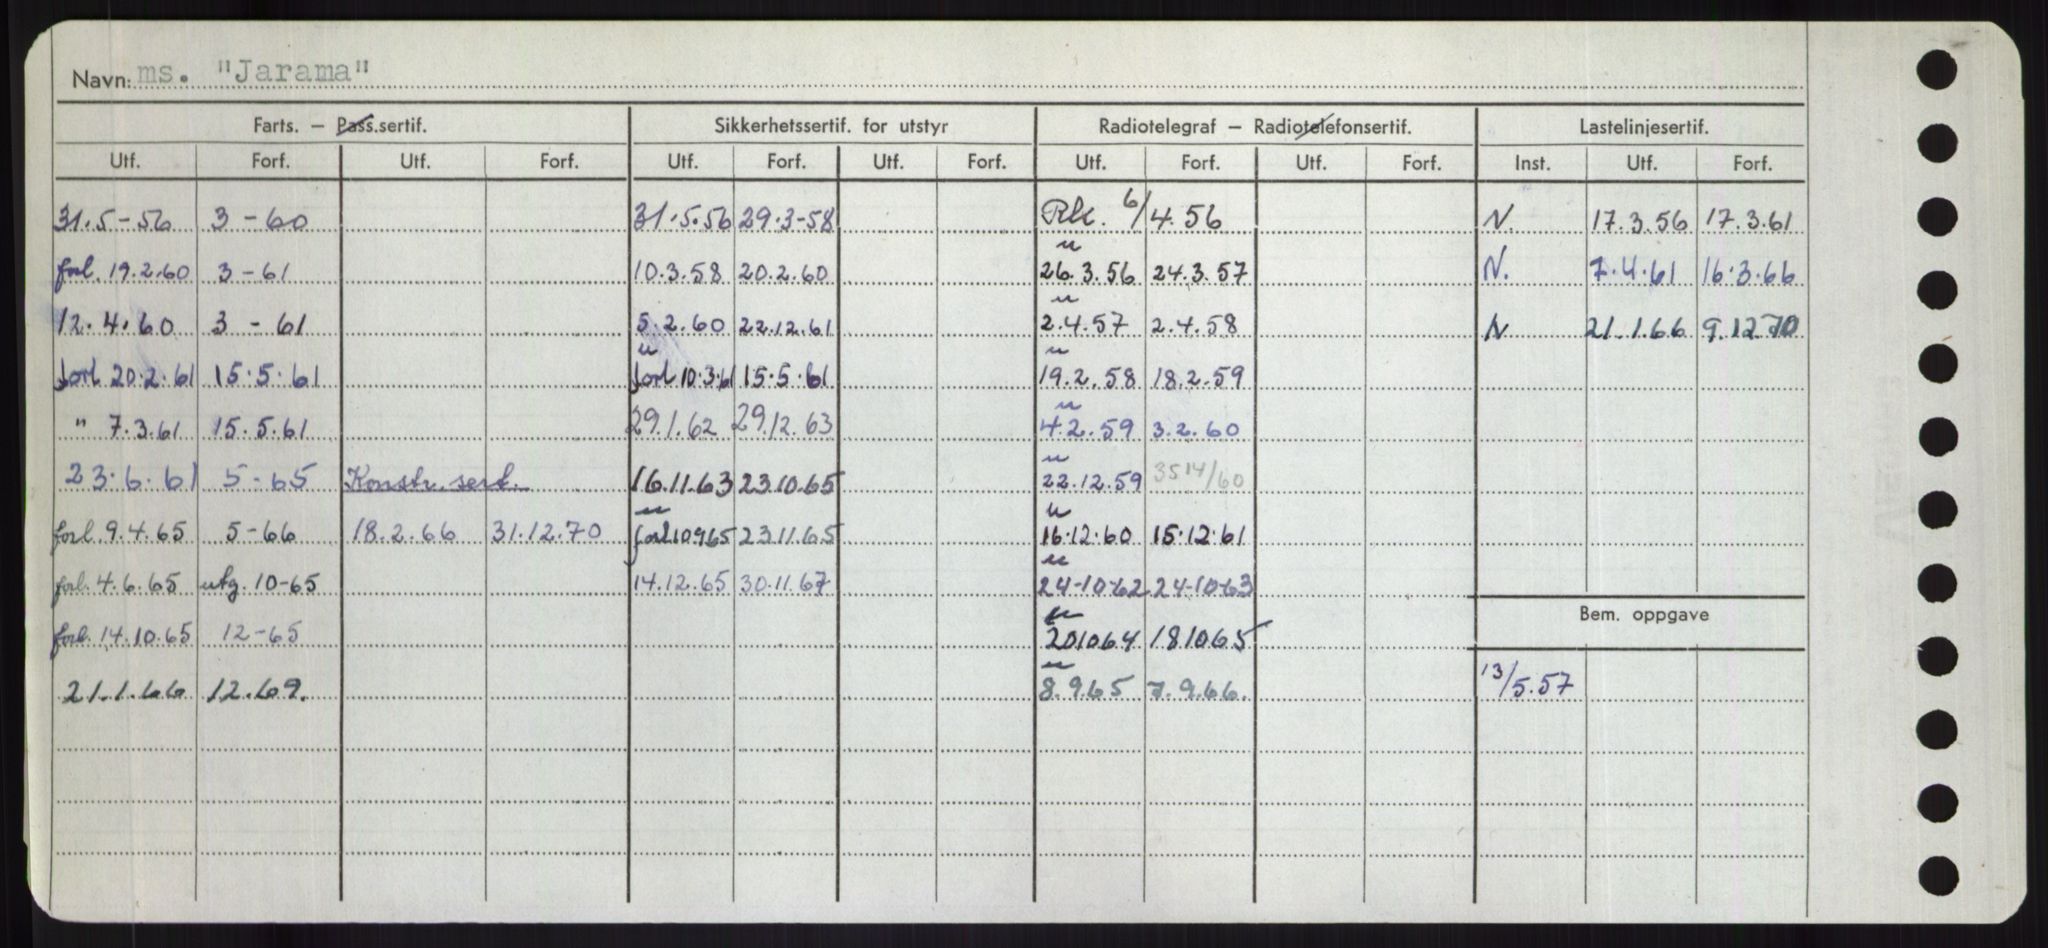 Navn: ms. "Jarama"
Farts. – Pass.sertif. Sikkerhetssertif. for utstyr Radiotelegraf – Radiotelefonsertif. Lastelinjesertif.
Utf. Forf. Utf. Forf. Utf. Forf. Utf. Forf. Utf. Forf. Utf. Forf. Inst. Utf. Forf.
31.5-56 3-60 31.5.56 29.3-58 6/4.56 N. 17.3.56 17.3.61
forl. 19.2.60 3-61 10.3.58 20.2.60 26.3.56 24.3.57 N. 7.4.61 16.3.66
12.4.60 3-61 5.2.60 22.12.61 2.4.57 2.4.58 N 21.1.66 9.12.70
forl 20.2.61 15.5.61 forl 10.3.61 15.5.61 19.2.58 18.2.59
" 7.3.61 15.5.61 29.1.62 29.12.63 4.2.59 3.2.60
23.6.61 5-65 Konstr. sert. 16.11.63 23.10.65 22.12.59
forl. 9.4.65 5-66 18.2.66 31.12.70 forl 10965 23.11.65 16.12.60 15.12.61
forl. 4.6.65 utg. 10-65 14.12.65 30.11.67 24-10-62 24-10-63
forl. 14.10.65 12-65 201064 181065
Bem. oppgave
21.1.66 12.69. 8.9.65 7.9.66. 13/5.57